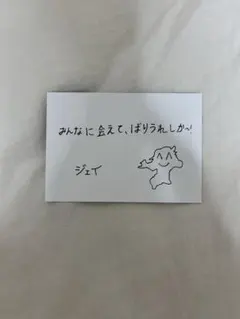 みんなに会えて、ばりうれしか~!
ジェイ